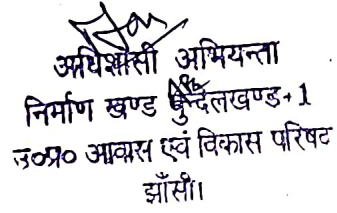 अधिशासी अभियन्ता
निर्माण खण्ड बुन्देलखण्ड-1
उ०प्र० आवास एवं विकास परिषद
झाँसी।